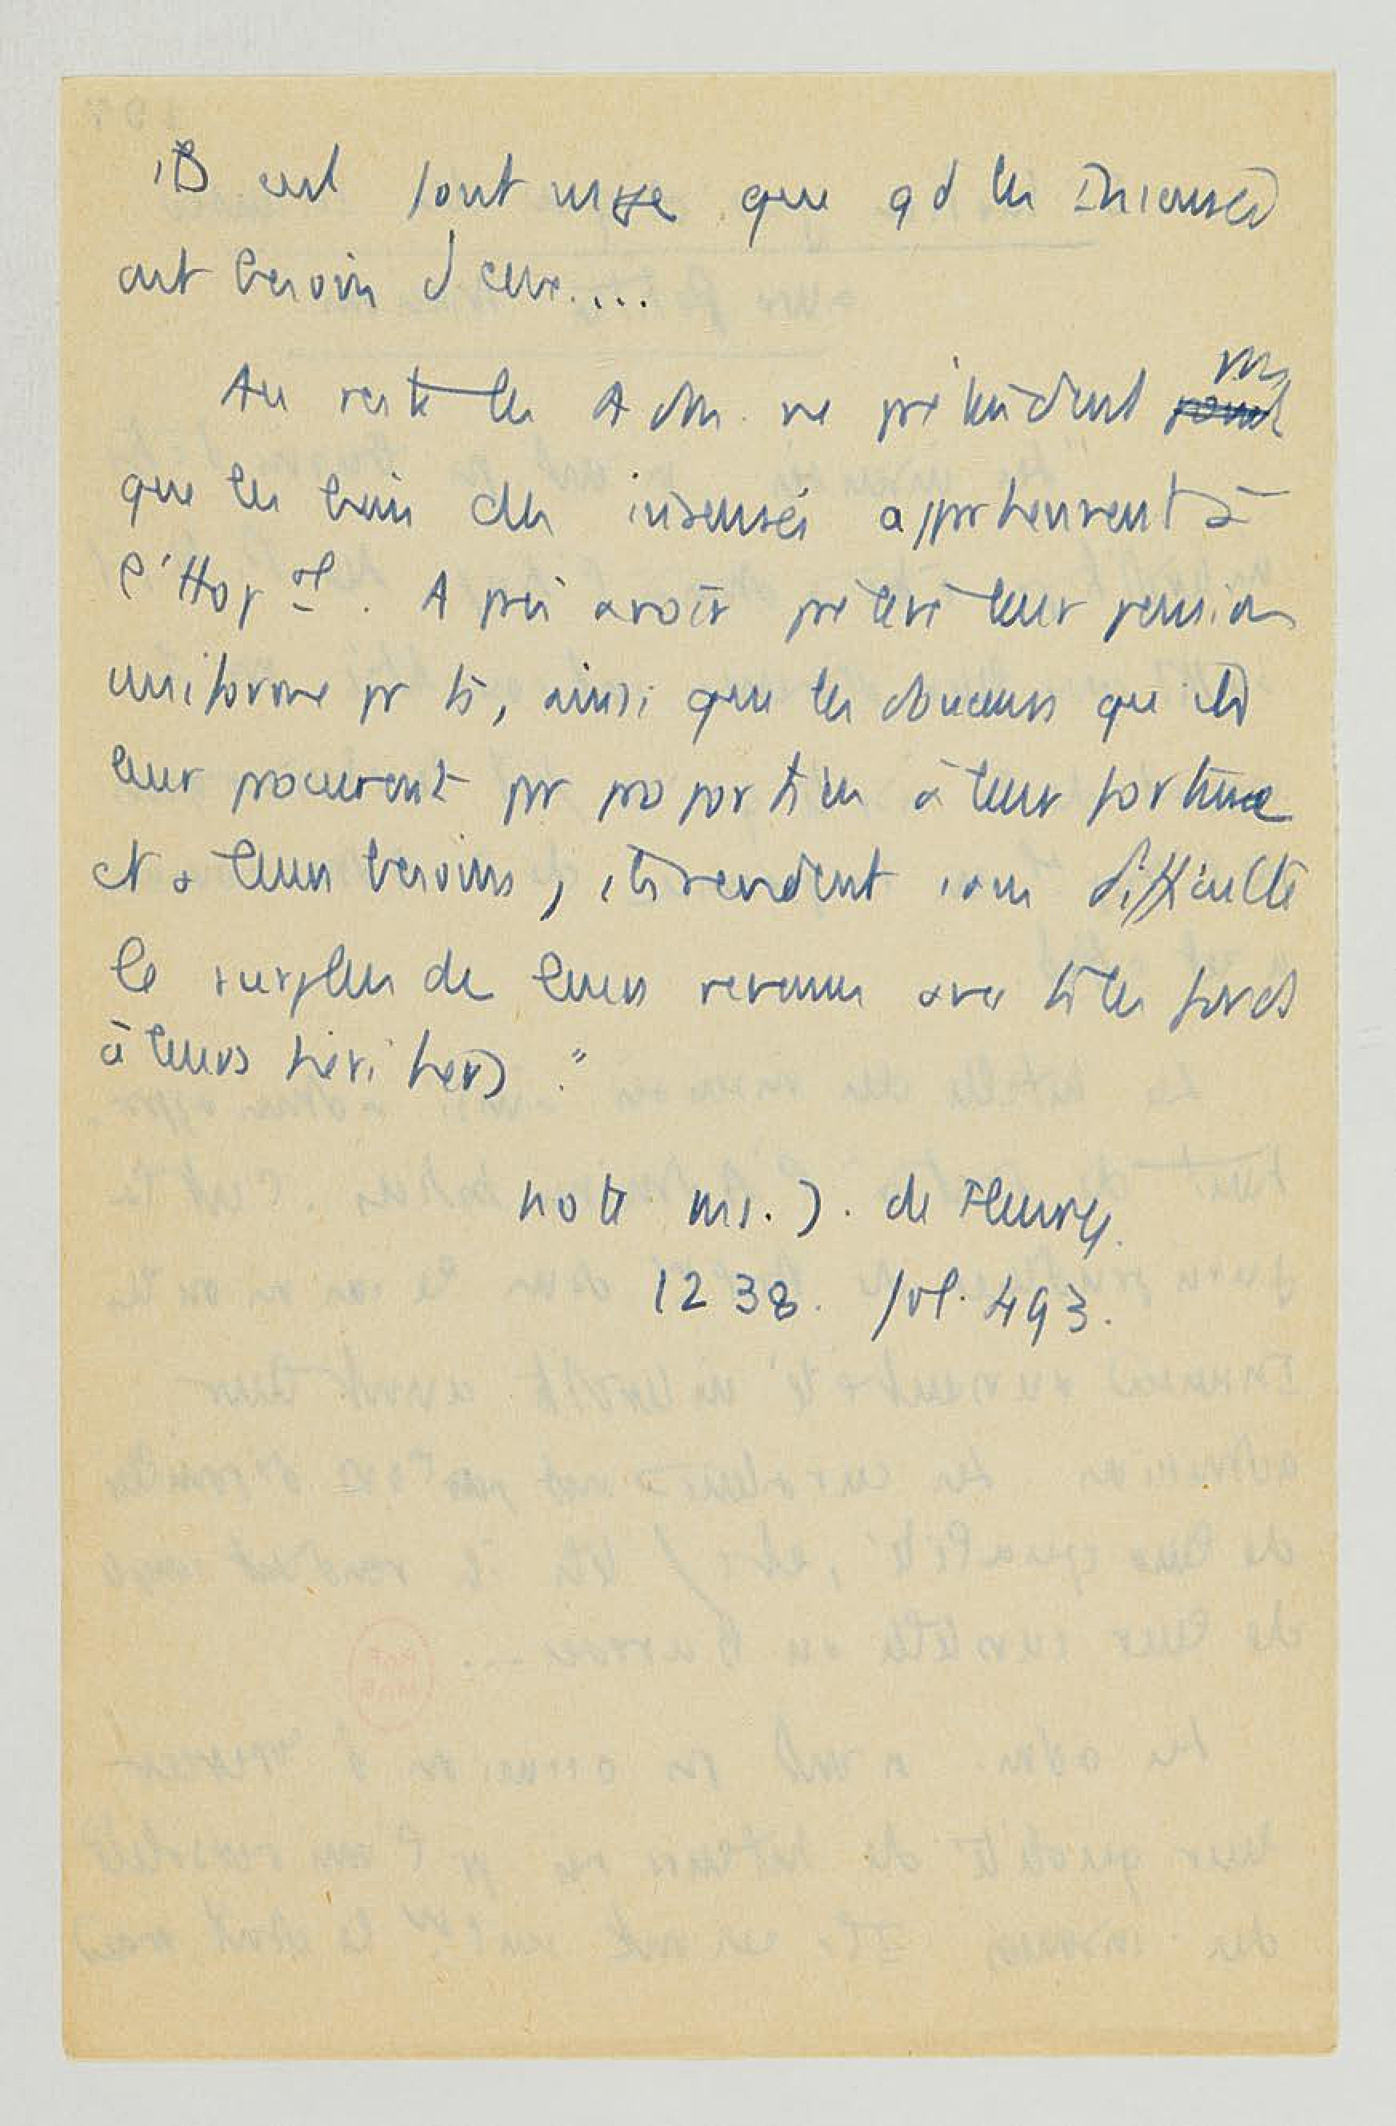 ils ont tout usage que qd les Insensés
ont besoin d'eux....
Au reste les Adm. ne prétendent pas
que les biens des insensés appartiennent à
l'Hop al. Après avoir prélevé leur pension
uniforme pr ts, ainsi que les douceurs qu'ils
leur procurent pr proportion à leur fortune
et à leurs besoins, ils rendent sans difficulté
le surplus de leurs revenus avec ts les fonds
à leurs héritiers."
note ms. J. de Fleury.
1238. fol. 493.